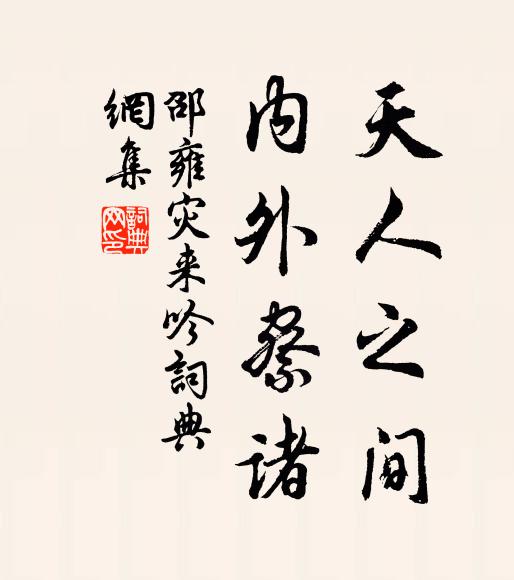 天人之间
内外察诸
邵雍灾来吟詞典
網集
詞典网印